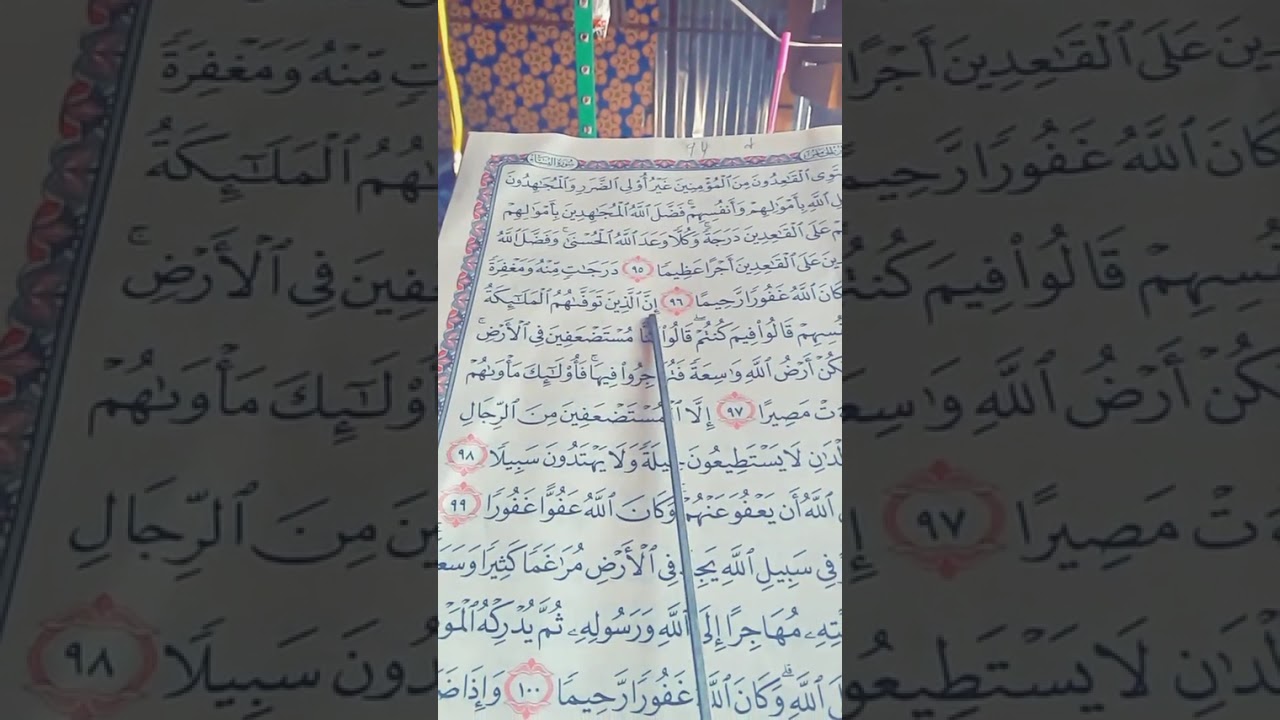 سورة النساء
94
القاعدون من المؤمنين غير أولي الضرر والمجاهدون
الله بأموالهم وأنفسهم فضل الله المجاهدين بأموالهم
على القاعدين درجة وكلا وعد الله الحسنى وفضل الله
على القاعدين أجرا عظيما ٩٥ درجات منه ومغفرة
كان الله غفورا رحيما ٩٦ إن الذين توفاهم الملائكة
قالوا فيم كنتم قالوا مستضعفين في الأرض
أرض الله واسعة فيها فأولئك مأواهم
مصيرا ٩٧ إلا المستضعفين من الرجال
لا يستطيعون ولا يهتدون سبيلا ٩٨
الله أن يعفو عنهم وكان الله عفوا غفورا ٩٩
في سبيل الله في الأرض مراغما كثيرا
مهاجرا إلى الله ورسوله ثم يدركه
الله وكان الله غفورا رحيما ١٠٠ وإذا